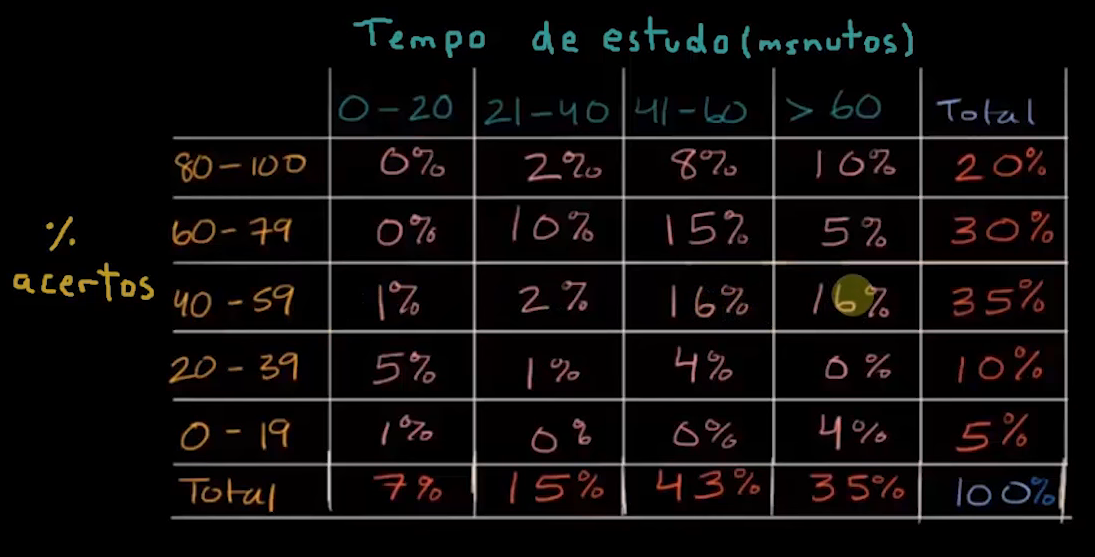 Tempo de estudo (msnutos)
0-20 21-40 41-60 > 60 Total
80-100 0% 2% 8% 10% 20%
60-79 0% 10% 15% 5% 30%
% acertos
40-59 1% 2% 16% 16% 35%
20-39 5% 1% 4% 0% 10%
0-19 1% 0% 0% 4% 5%
Total 7% 15% 43% 35% 100%